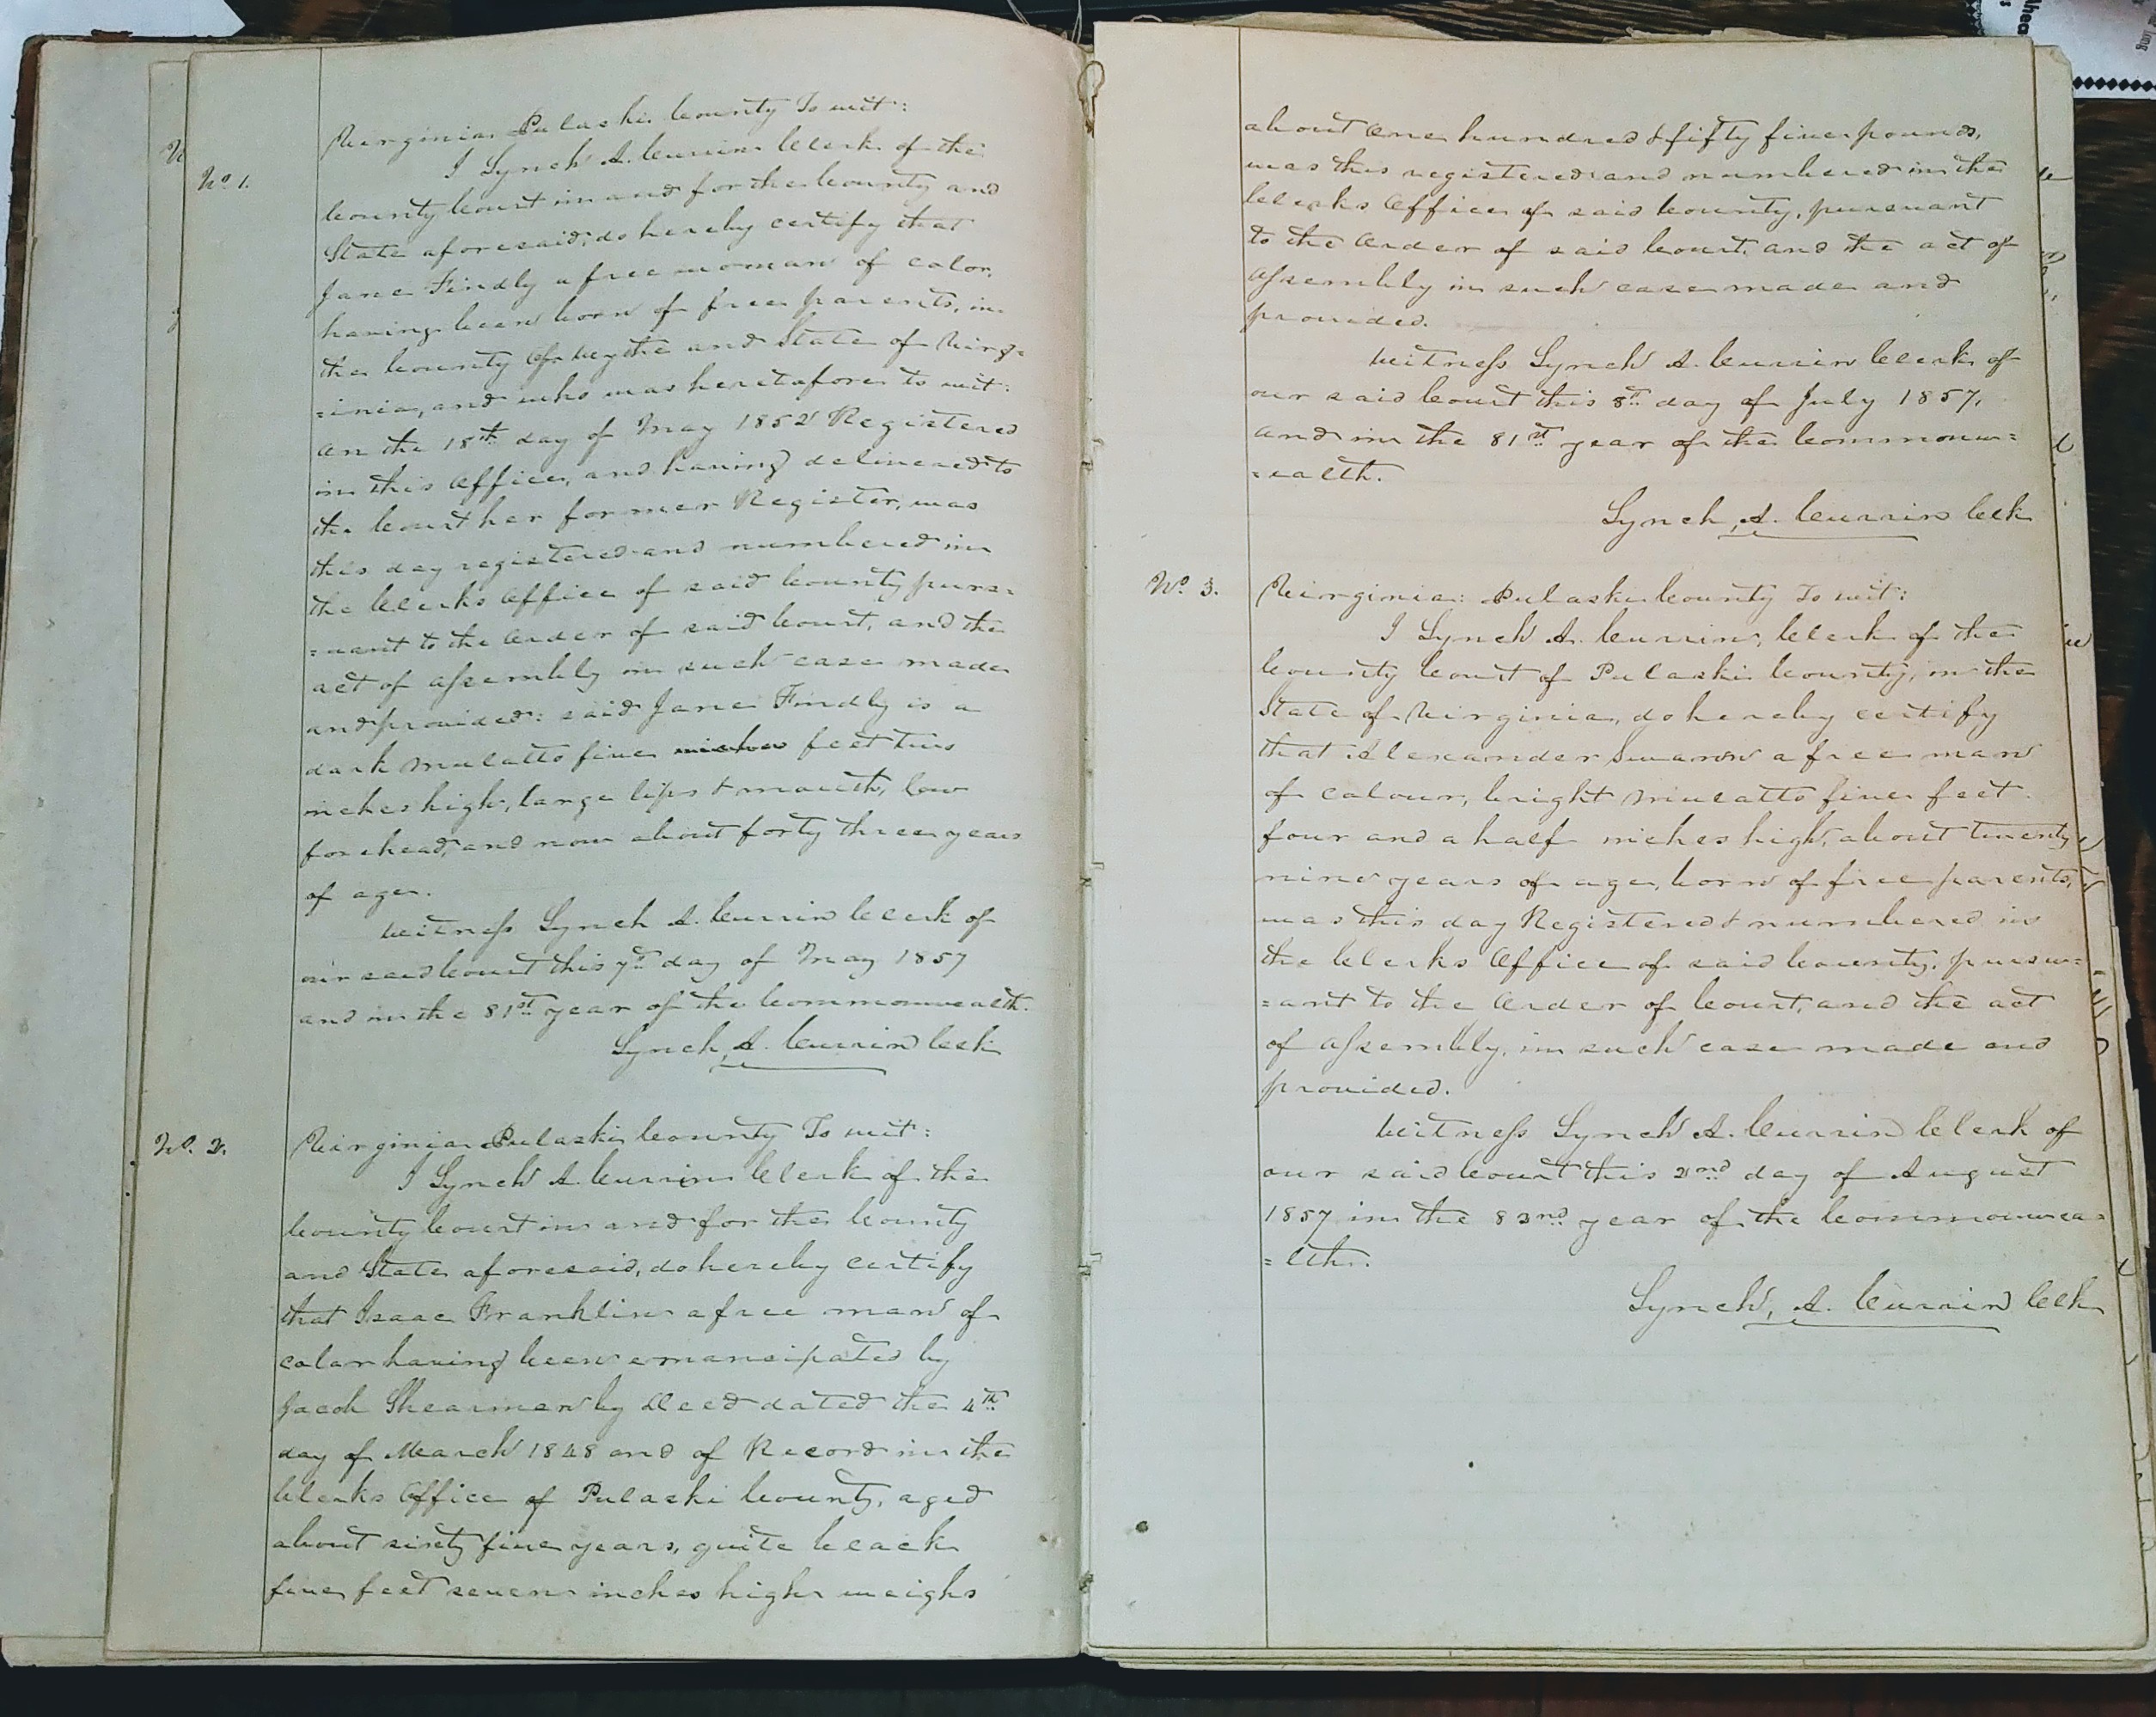 Virginia. Pulaski County To wit:
No 1.
I Lynch A. Currin Clerk of the
County Court in and for the County and
State aforesaid, do hereby certify that
Jane Findly a free woman of color,
having been born of free parents, in
the County of Wythe and State of Virg=
=inia, and who was heretofore to wit:
on the 18th day of May 1852 Registered
in this Office, and having delivered to
the Court her former Register, was
this day registered and numbered in
the Clerks Office of said County purs=
=uant to the Order of said Court, and the
act of assembly in such case made
and provided: said Jane Findly is a
dark mulatto five inches feet two
inches high, large lips & mouth, low
forehead, and now about forty three years
of age.
Witness Lynch A. Currin Clerk of
our said Court this 7th day of May 1857
and in the 81st year of the Commonwealth.
Lynch A. Currin Clk
No. 2.
Virginia Pulaski County To wit:
I Lynch A. Currin Clerk of the
County Court in and for the County
and State aforesaid, do hereby certify
that Isaac Franklin a free man of
color having been emancipated by
Jacob Shearmen by Deed dated the 4th
day of March 1848 and of Record in the
Clerks Office of Pulaski County, aged
about sixty five years, quite black
five feet seven inches high weighs
about One hundred & fifty five pounds,
was this registered and numbered in the
Clerks Office of said County, pursuant
to the Order of said Court, and the act of
assembly in such case made and
provided.
Witness Lynch A. Currin Clerk of
our said Court this 8th day of July 1857,
and in the 81st year of the Commonw=
=ealth.
Lynch A. Currin Clk
No. 3.
Virginia: Pulaski County To wit:
I Lynch A. Currin, Clerk of the
County Court of Pulaski County, in the
State of Virginia, do hereby certify
that Alexander a free man
of colour, bright mulatto five feet
four and a half inches high, about twenty
nine years of age, born of free parents,
was this day Registered & numbered in
the Clerks Office of said County, pursu=
=ant to the Order of Court, and the act
of assembly, in such case made and
provided.
Witness Lynch A. Currin Clerk of
our said Court this 2nd day of August
1857 in the 83rd year of the Commonwea=
=lth.
Lynch, A. Currin Clk